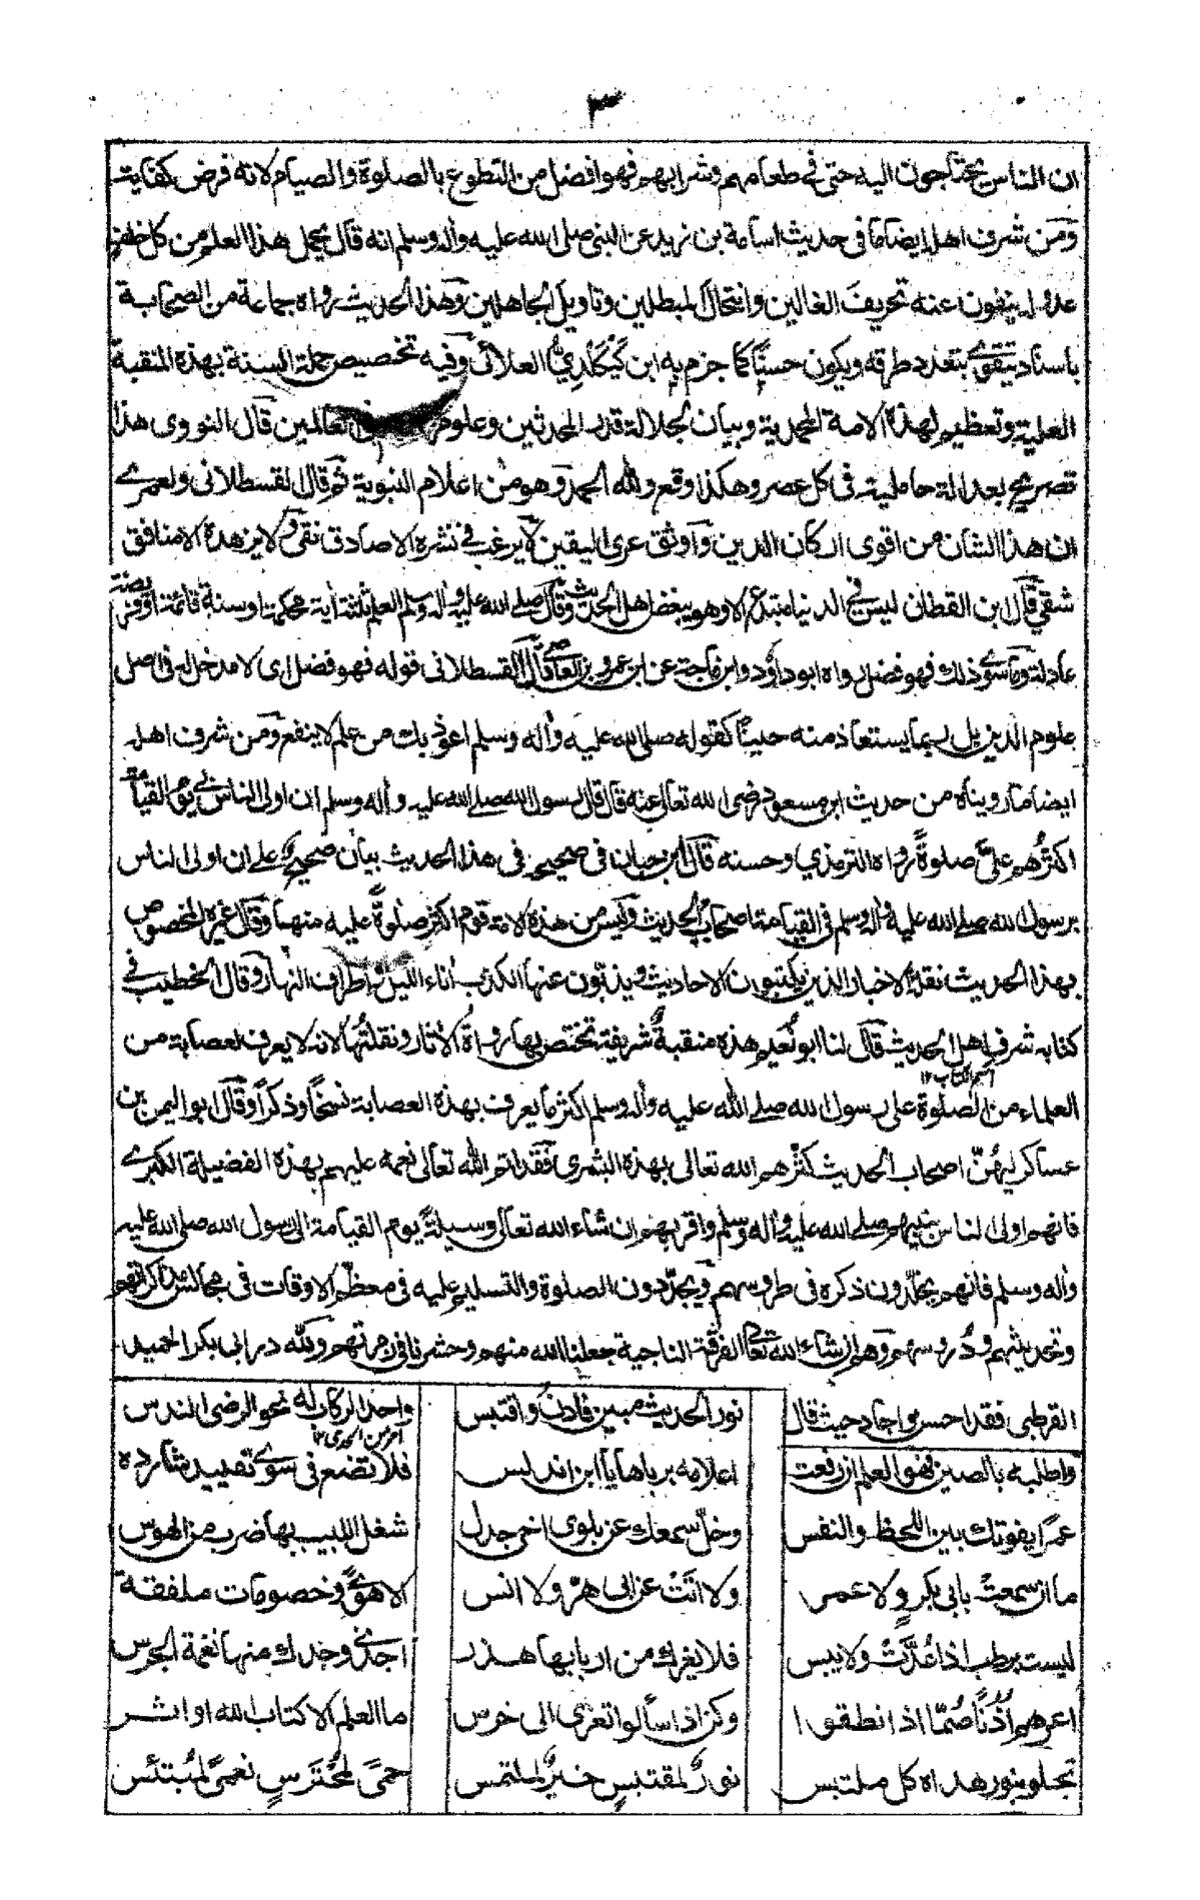 ٣
ان الناس يحتاجون اليه حتى فى طعامهم وشرابهم فهو افضل من التطوع بالصلوة والصيام لانه فرض كفايت
ومن شرف اهله ايضا ما فى حديث اسامة بن زيد عن النبى صلى الله عليه وأله وسلم انه قال يحمل هذا العلم من كل خلف
عدوله ينفون عنه تحريف الغالين وانتحال المبطلين وتاويل الجاهلين وهذا الحديث رواه جماعة من الصحابة
باسناد يتقوى بتعدد طرقه ويكون حسنًا كما جزم به ابن كيكلدي العلائى وفيه تخصيص حملة السنة بهذه المنقبة
العلية وتعظيم لهذه الامة المحمدية وبيان لجلالة قدر المحدثين وعلو فى العالمين قال النووى هذا
تصريح بعدالة حامليه فى كل عصر وهكذا وقع ولله الحمد وهو من اعلام النبوية ثم قال القسطلانى ولعمرى
ان هذا الشان من اقوى اركان الدين واوثق عرى اليقين لا يرغب فى نشره الا صادق تقى ولا يزهده الا منافق
شقي قال ابن القطان ليس فى الدنيا مبتدع الا وهو يبغض اهل الحديث وقال صلى الله عليه وأله وسلم العلم ثلثة أية محكمة او سنة قائمة او فريضة
عادلة وما سوى ذلك فهو فضل رواه ابو داؤد وابن ماجة عن ابن عمرو بن العاص قال القسطلانى قوله فهو فضل اى لا مدخل له فى اصل
علوم الدين بل ربما يستعاذ منه حينًا كقوله صلى الله عليه وأله وسلم اعوذ بك من علم لا ينفع ومن شرف اهله
ايضا ما رويناه من حديث ابن مسعود رضى الله تعالى عنه قال قال رسول الله صلى الله عليه وأله وسلم ان اولى الناس بى يوم القيامة
اكثرُهم علىَّ صلوةً رواه الترمذي وحسنه قال ابن حبان فى صحيحه فى هذا الحديث بيان صحيح على ان اولى الناس
برسول الله صلى الله عليه وأله وسلم فى القيامة اصحاب الحديث وليس من هذه الامة قوم اكثر صلوةً عليه منهم وقال غيره المخصوص
بهذا الحديث نقلة الاخبار الذين يكتبون الاحاديث ويذبّون عنها الكذب أناء الليل واطراف النهار وقال الخطيب فى
كتابه شرف اهل الحديث قال لنا ابو نُعيم هذه منقبةٌ شريفة تختص بها رواة الأثار ونقلتُها لانه لا يعرف لعصابة من
اسم الكتاب ١٢
العلماء من الصلوة على رسول الله صلى الله عليه وأله وسلم اكثر ما يعرف بهذه العصابة نسخًا وذكرًا وقال ابو اليمن بن
عساكر ليهُنّ اصحاب الحديث كثَّرهم الله تعالى بهذه البشرى فقد اتم الله تعالى نعمه عليهم بهذه الفضيلة الكبرى
فانهم اولى الناس بنبيهم صلى الله عليه وأله وسلم واقربهم ان شاء الله تعالى وسيلةً يوم القيامة الى رسول الله صلى الله عليه
وأله وسلم فانهم يخلّدون ذكره فى طروسهم ويجدّدون الصلوة والتسليم عليه فى معظم الاوقات فى مجالس مذاكراتهم
وتحديثهم ودُروسهم وهم ان شاء الله تعالى الفرقة الناجية جعلنا الله منهم وحشرنا فى زمرتهم ولله در ابى بكر الحميد
القرطبى فقد احسن واجاد حيث قال نور الحديث مبين فادن واقتبس واحد الركاب له نحو الرضى الندس
امر من الحدى ١٢
واطلبه بالصين فهو العلم ان رفعت اعلامه برباها يا ابن اندلس فلا تضع فى سوى تقييد شارده
عمرًا يفوتك بين اللحظ والنفس وخلّ سمعك عن بلوى اخى جدل شغل اللبيب بها ضرب من الهوس
ما ان سمعتْ بابى بكرٍ ولا عمر ولا اتَتْ عن ابى هرٍّ ولا انس الا هوًى وخصومات ملفقة
ليست برطب اذا عُدَّتْ ولا يبس فلا يغرك من اربابها هذر اجدى وجدك منها نغمة الجرس
اعرهم اُذنًا صُمّا اذا نطقوا وكن اذا سألوا تعزى الى خرس ما العلم الا كتاب الله او اثر
تجلو بنور هداه كل ملتبس نورٌ لمقتبسٍ خيرٌ لملتمس حمىً لمحترسٍ نعمىً لمُبتئس